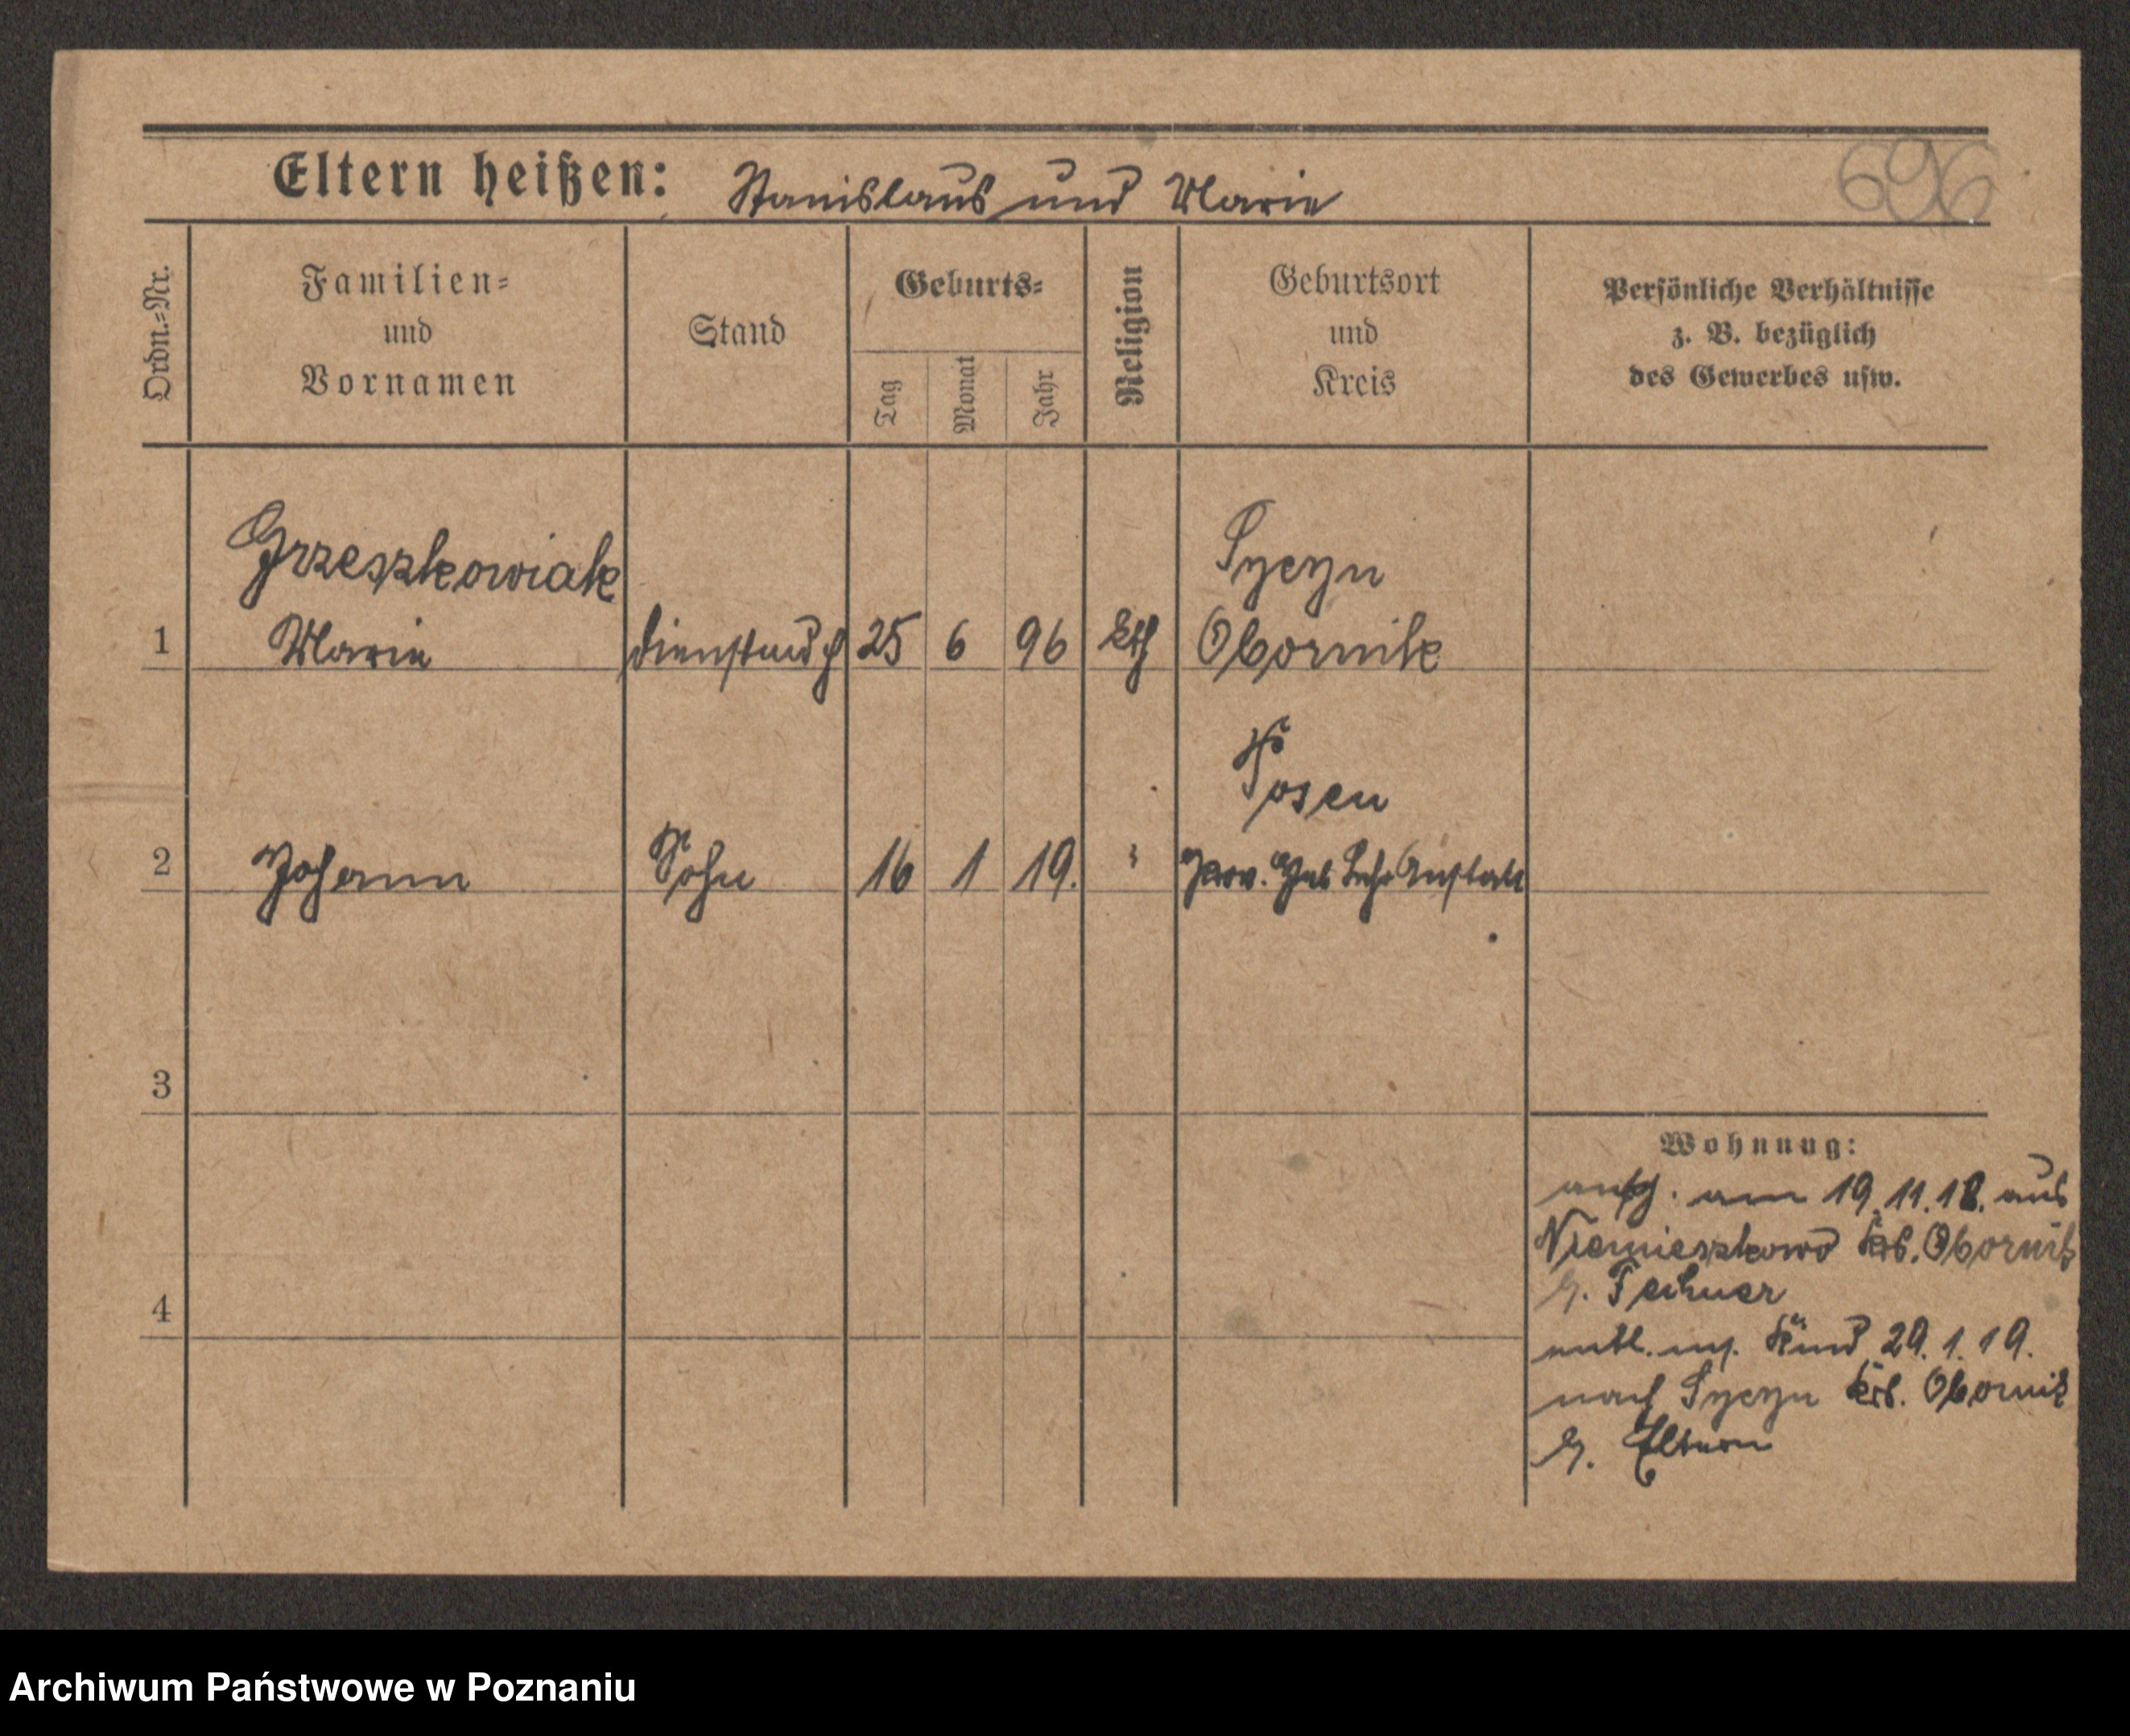 Eltern heißen: Stanislaus und Marie
696
Ordn.=Nr.
Familien=
und
Vornamen
Stand
Geburts=
Tag
Monat
Jahr
Religion
Geburtsort
und
Kreis
Persönliche Verhältnisse
z. B. bezüglich
des Gewerbes usw.
Grzeszkowiak
1 Marie
25 6 96 kth
Obornik
Posen
2 Johann Sohn 16 1 19. " Prov. Heb Lehr Anstalt
3
4
Wohnung:
am 19.11.18. aus
Krs. Obornik
Kind 29.1.19.
nach Krs. Obornik
z. Eltern
Archiwum Państwowe w Poznaniu